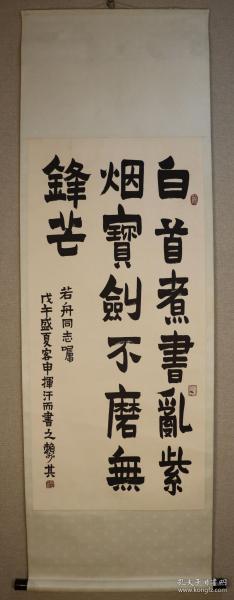 白首煮書亂紫
烟寶劍不磨無
鋒芒
若舟同志囑
戊午盛夏客申揮汗而書之賴少其
孔夫子旧书网
www.kongfz.com